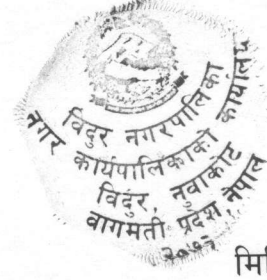 विदुर नगरपालिका
नगर कार्यपालिकाको कार्यालय
विदुर, नुवाकोट
वागमती प्रदेश नेपाल
२०७३
मि